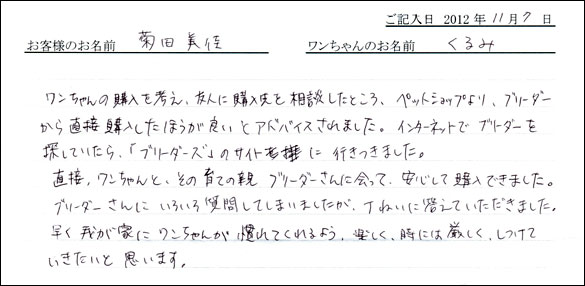 ご記入日 2012年 11月 7日
お客様のお名前 菊田 美佳 ワンちゃんのお名前 くるみ
ワンちゃんの購入を考え、友人に購入先を相談したところ、ペットショップより、ブリーダー
から直接購入したほうが良いとアドバイスされました。インターネットでブリーダーを
探していたら、「ブリーダーズ」のサイト様に行きつきました。
直接、ワンちゃんと、その育ての親 ブリーダーさんに会って、安心して購入できました。
ブリーダーさんにいろいろ質問してしまいましたが、丁ねいに答えていただきました。
早く我が家にワンちゃんが慣れてくれるよう、楽しく、時には厳しく、しつけて
いきたいと思います。